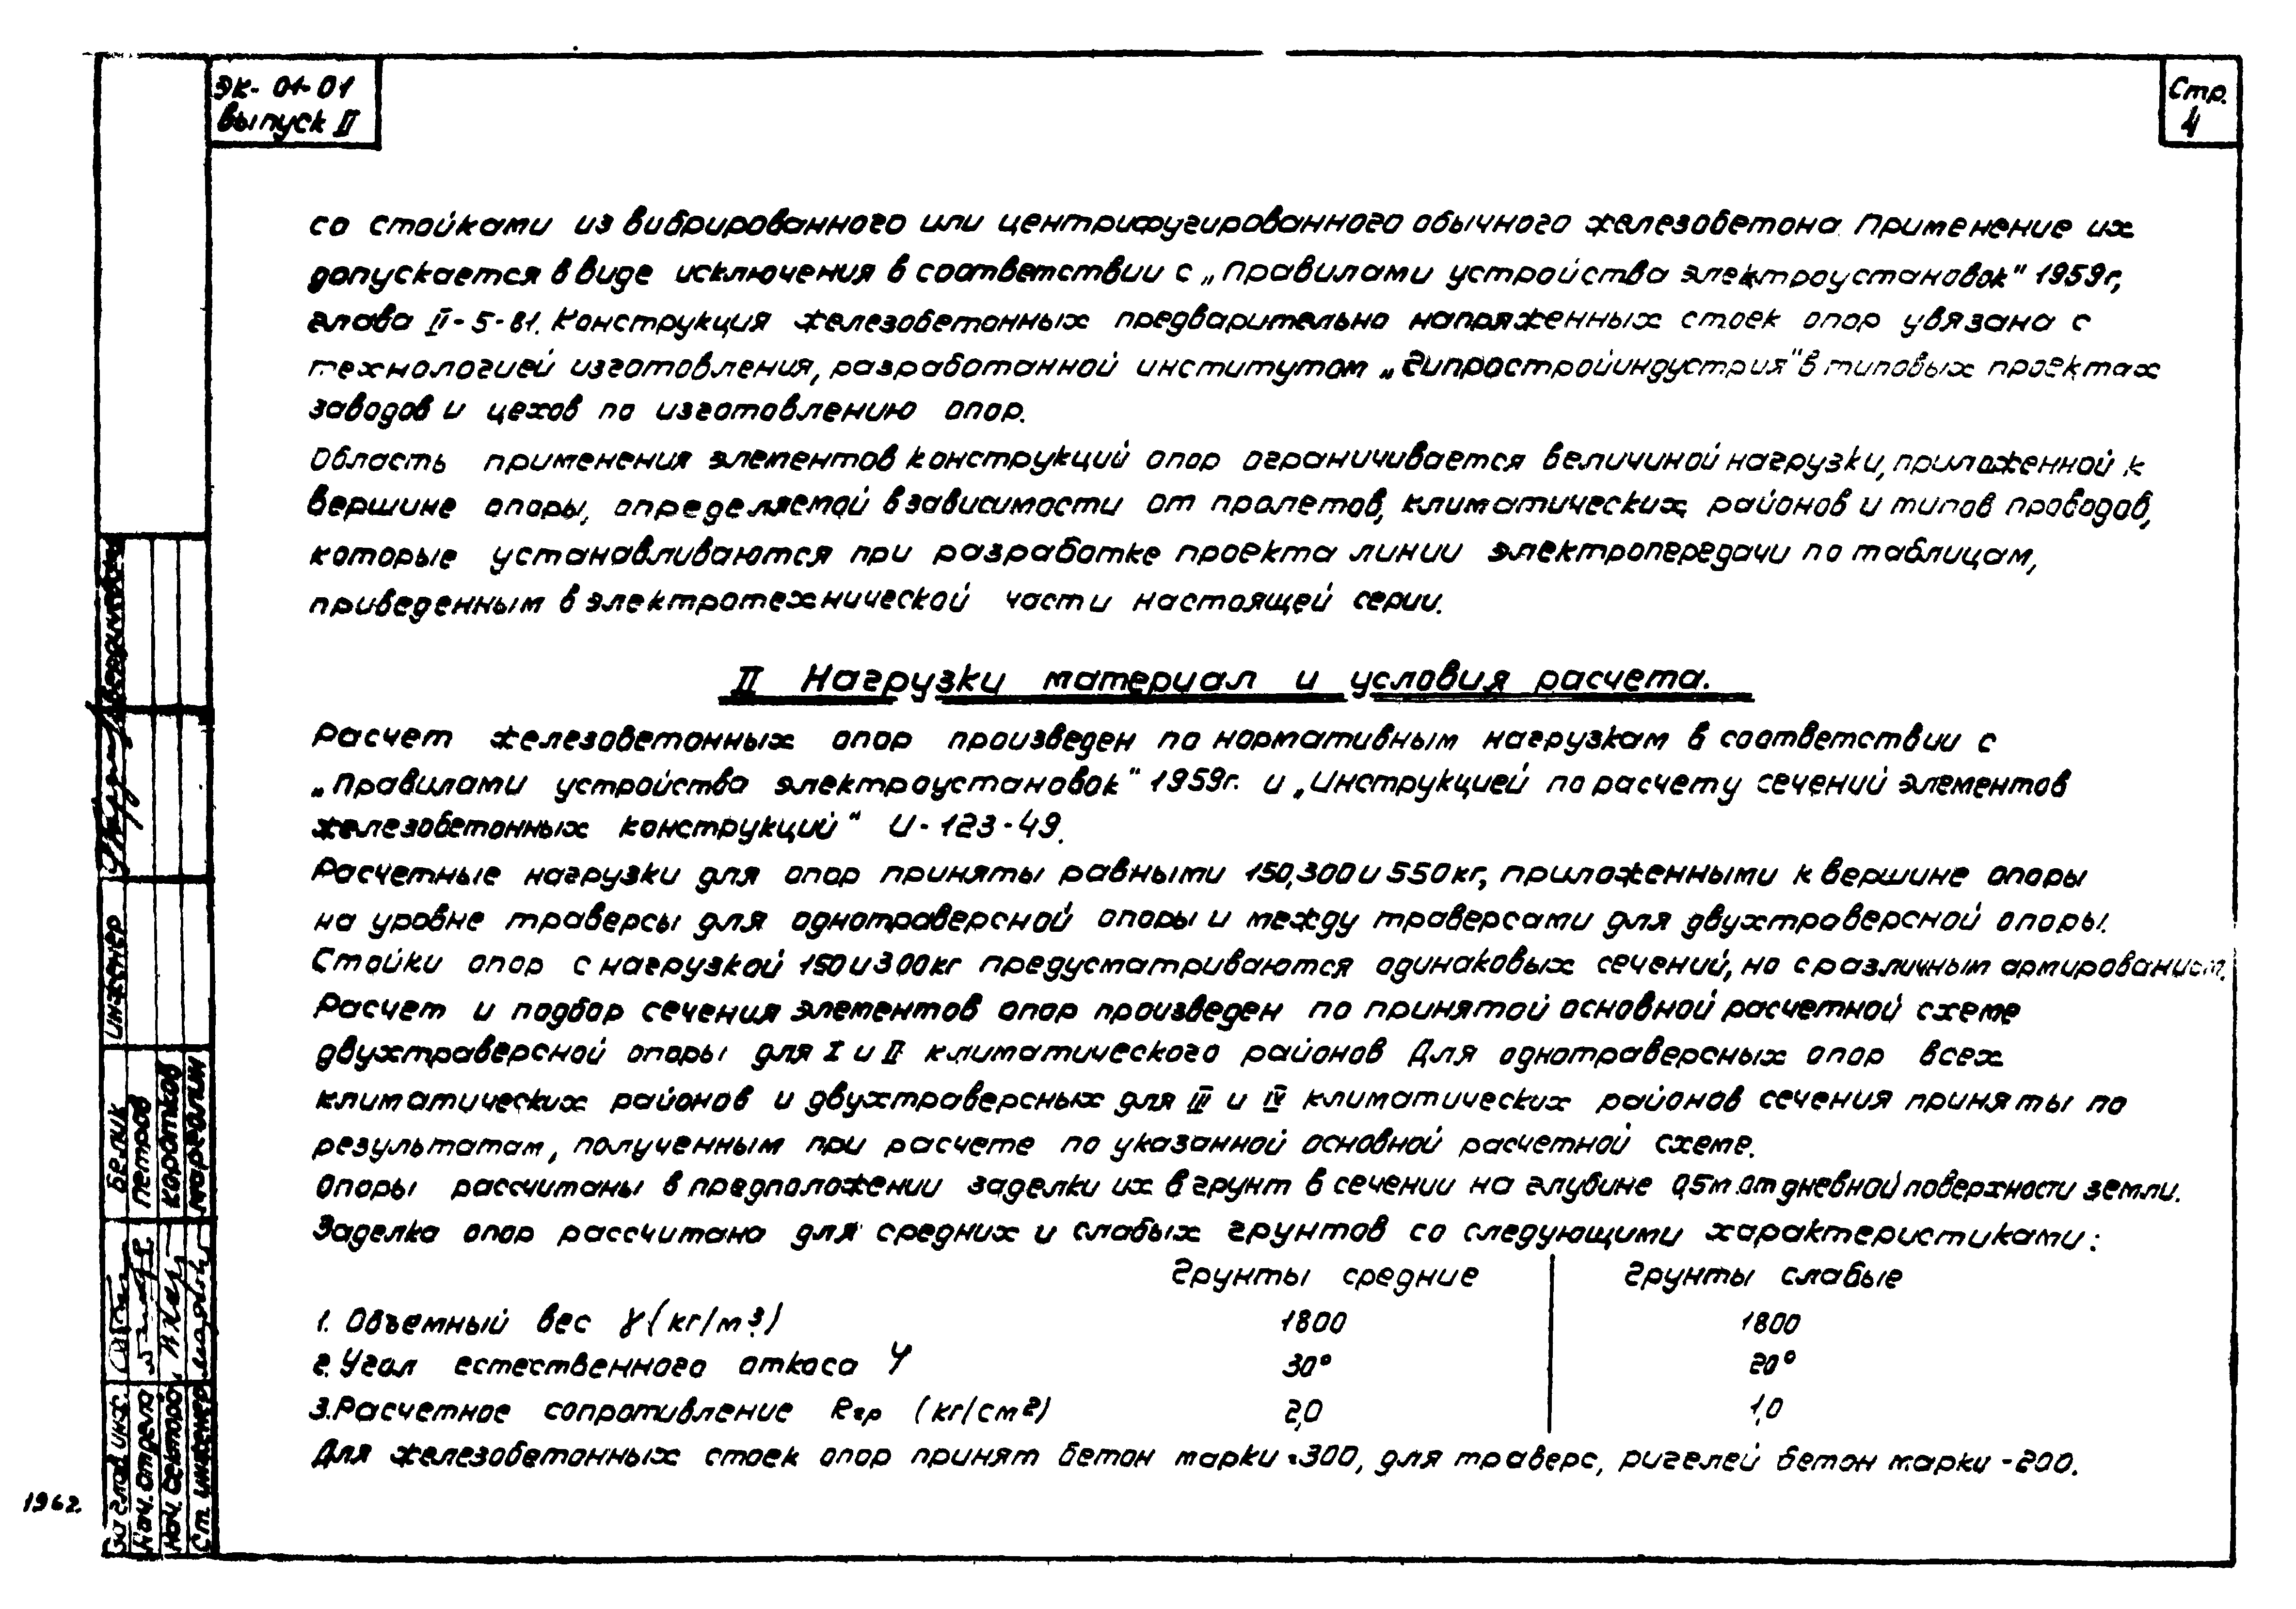 ЭК-01-01
выпуск II
Стр.
4
со стойками из вибрированного или центрифугированного обычного железобетона. Применение их
допускается в виде исключения в соответствии с „Правилами устройства электроустановок" 1959г,
глава II-5-81. Конструкция железобетонных предварительно напряженных стоек опор увязана с
технологией изготовления, разработанной институтом „Гипростройиндустрия" в типовых проектах
заводов и цехов по изготовлению опор.
Область применения элементов конструкций опор ограничивается величиной нагрузки, приложенной к
вершине опоры, определяемой в зависимости от пролетов, климатических районов и типов проводов,
которые устанавливаются при разработке проекта линии электропередачи по таблицам,
приведенным в электротехнической части настоящей серии.
II Нагрузки материал и условия расчета.
Расчет железобетонных опор произведен по нормативным нагрузкам в соответствии с
„Правилами устройства электроустановок" 1959г. и „Инструкцией по расчету сечений элементов
железобетонных конструкций" И-123-49.
Расчетные нагрузки для опор приняты равными 150,300 и 550кг, приложенными к вершине опоры
на уровне траверсы для однотраверсной опоры и между траверсами для двухтраверсной опоры.
Стойки опор с нагрузкой 150 и 300кг предусматриваются одинаковых сечений, но с различным армированием.
Расчет и подбор сечения элементов опор произведен по принятой основной расчетной схеме
двухтраверсной опоры для I и II климатического районов Для однотраверсных опор всех
климатических районов и двухтраверсных для III и IV климатических районов сечения приняты по
результатам, полученным при расчете по указанной основной расчетной схеме.
Опоры рассчитаны в предположении заделки их в грунт в сечении на глубине 0,5м от дневной поверхности земли.
Заделка опор рассчитана для средних и слабых грунтов со следующими характеристиками:
Грунты средние Грунты слабые
1. Объемный вес γ (кг/м³) 1800 1800
2. Угол естественного откоса φ 30° 20°
3. Расчетное сопротивление Rгр (кг/см²) 2,0 1,0
Для железобетонных стоек опор принят бетон марки -300, для траверс, ригелей бетон марки -200.
инженер
Белик
Петров
Коротков
Марголин
Нач. отдела
Нач. сектора
Ст. инженер
1962.